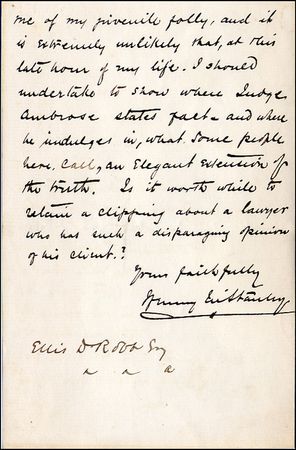 me of my juvenile folly, and it
is extremely unlikely that, at this
late hour of my life, I should
undertake to show where Judge
Ambrose states fact - and where
he indulges in, what some people
here, call, an Elegant Extension of
the truth. Is it worth while to
retain a clipping about a lawyer
who has such a disparaging opinion
of his client?
Yours faithfully
Henry M Stanley
Ellis D Robb Esq